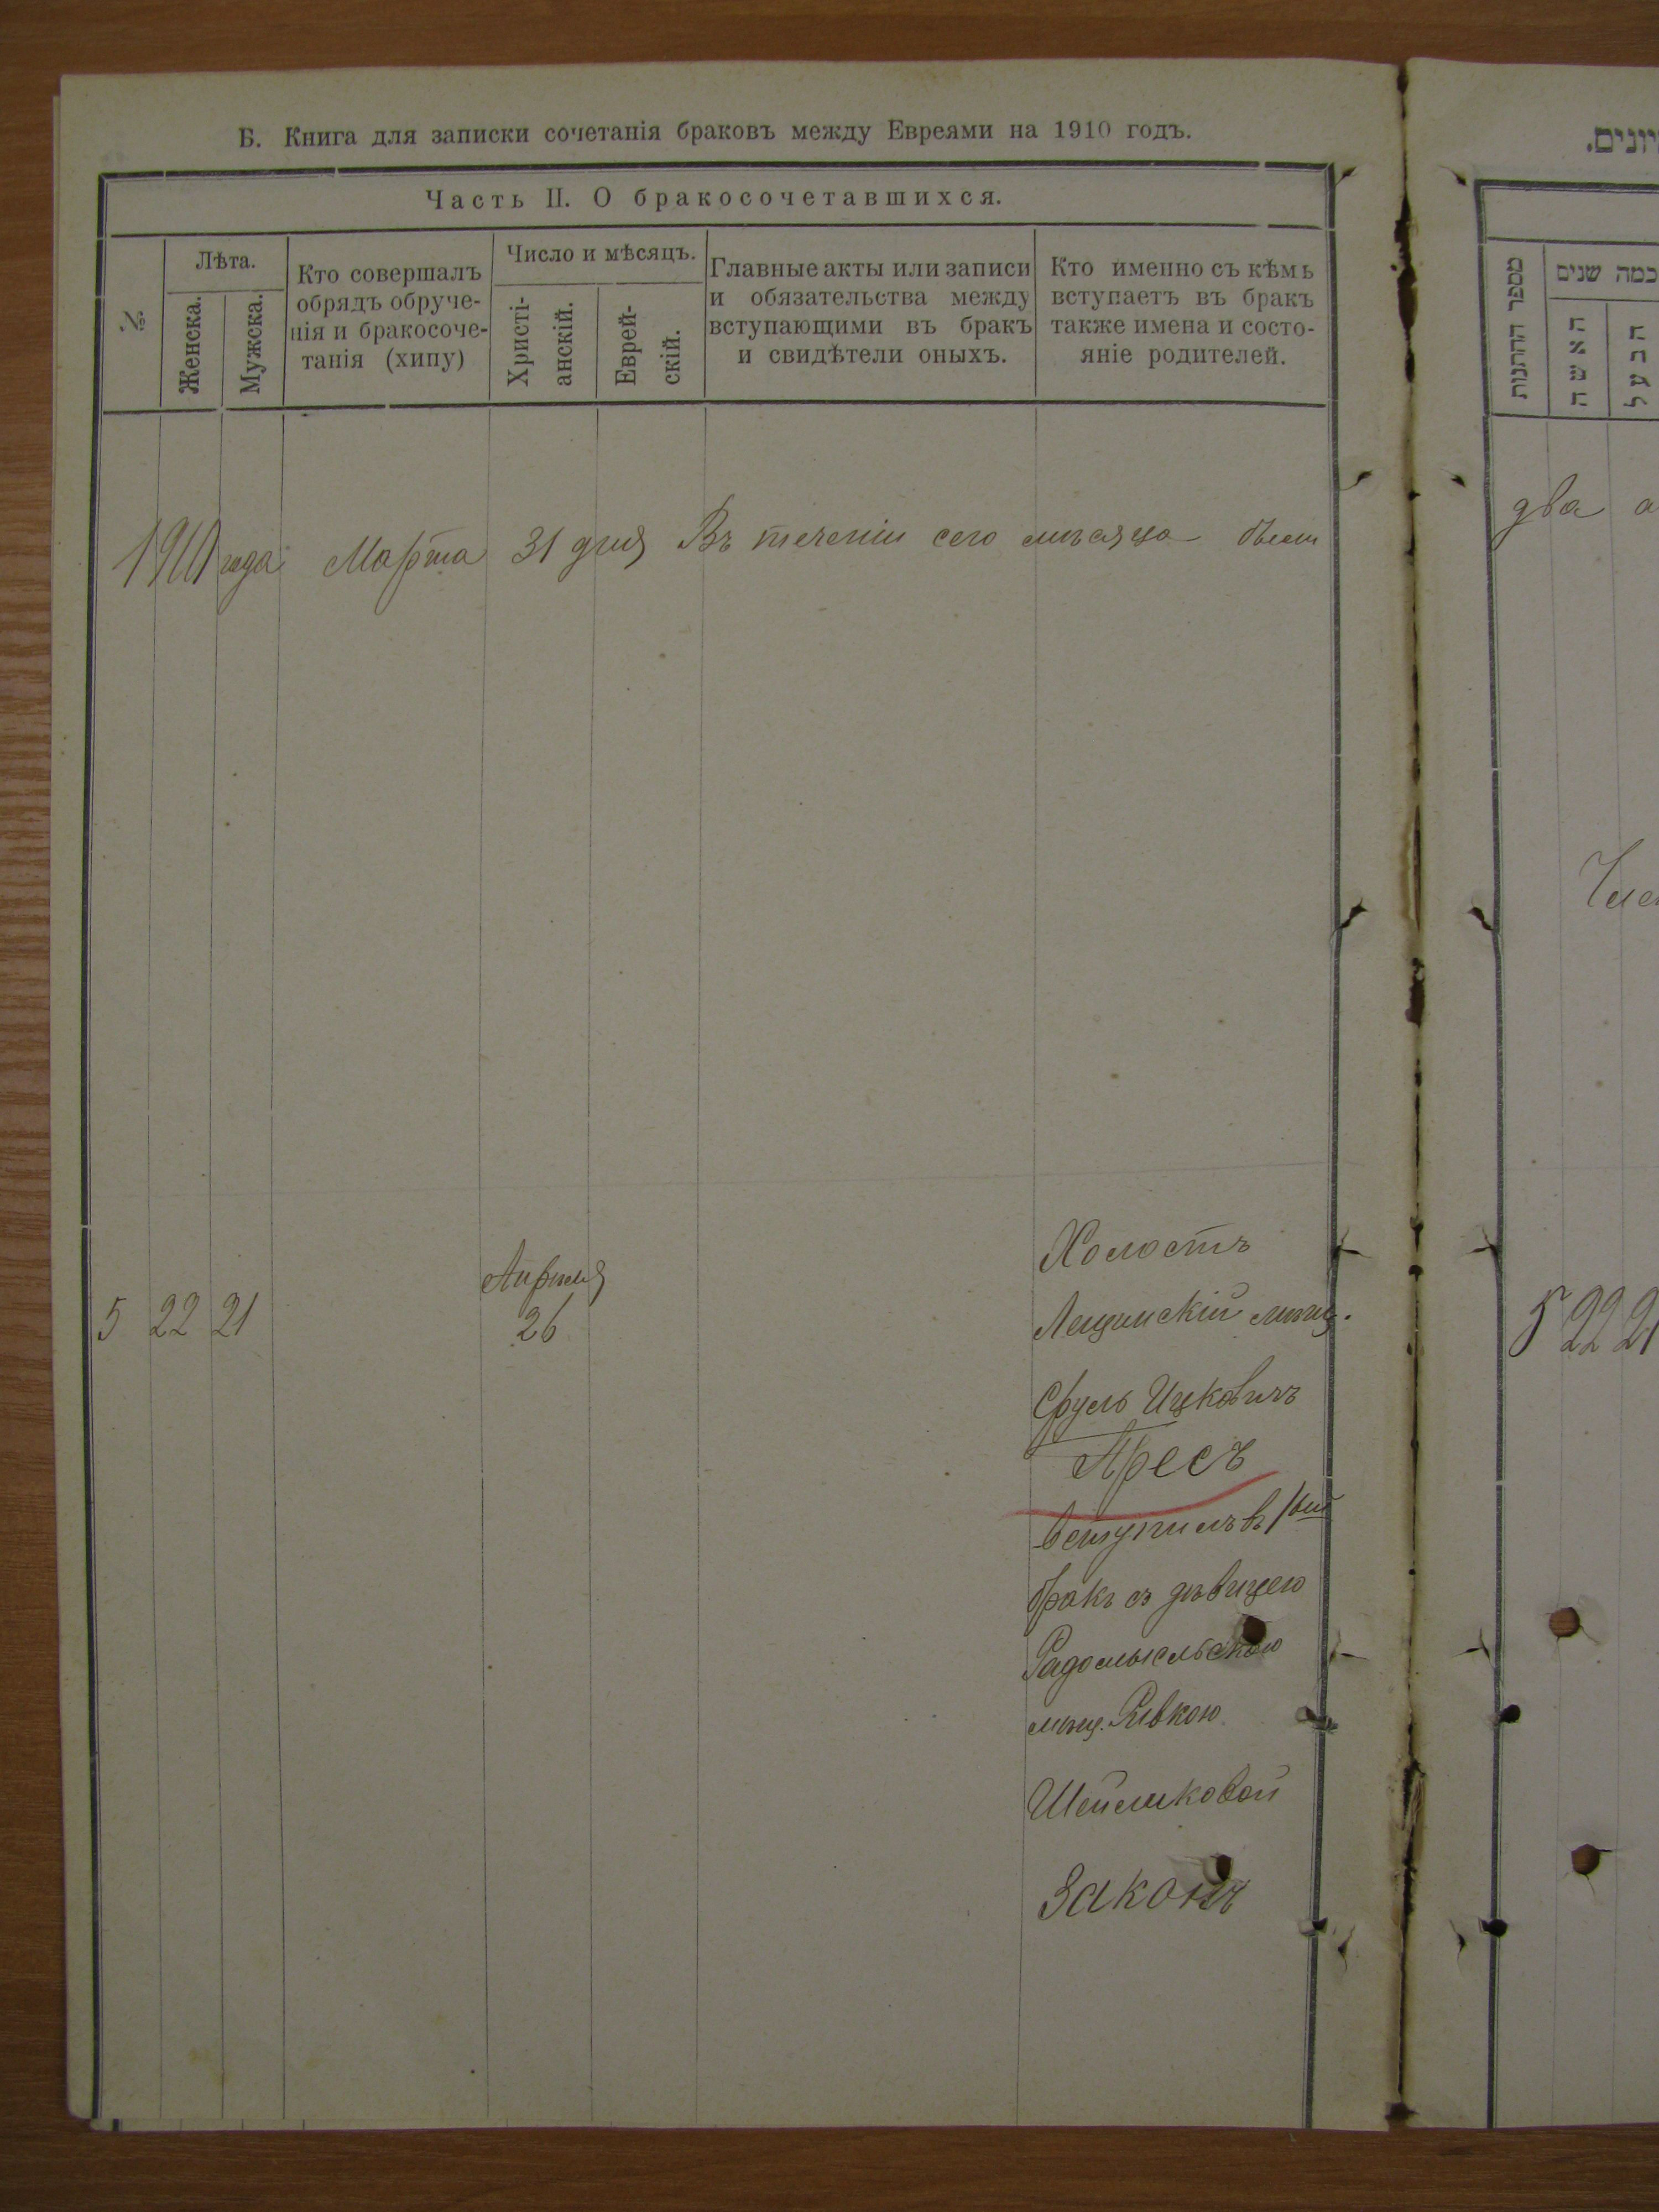 Б. Книга для записки сочетанія браковъ между Евреями на 1910 годъ.
Часть II. О бракосочетавшихся.
№
Лѣта.
Женска.
Мужска.
Кто совершалъ
обрядъ обруче-
нія и бракосоче-
танія (хипу)
Число и мѣсяцъ.
Христі-
анскій.
Еврей-
скій.
Главные акты или записи
и обязательства между
вступающими въ бракъ
и свидѣтели оныхъ.
Кто именно съ кѣмъ
вступаетъ въ бракъ
также имена и состо-
яніе родителей.
1910 года Марта 31 дня Въ теченіи сего мѣсяца были
5 22 21
Апрѣля
26
Холостъ
мѣщ.
Сруль Ицковичъ
Аресъ
вступилъ въ 1вый
бракъ съ дѣвицею
Радомысльскою
мѣщ. Ривкою
Шейликовой
Законъ
יונים.
מספר החתנות
כמה שנים
האשה
הבעל
два
5 22 21